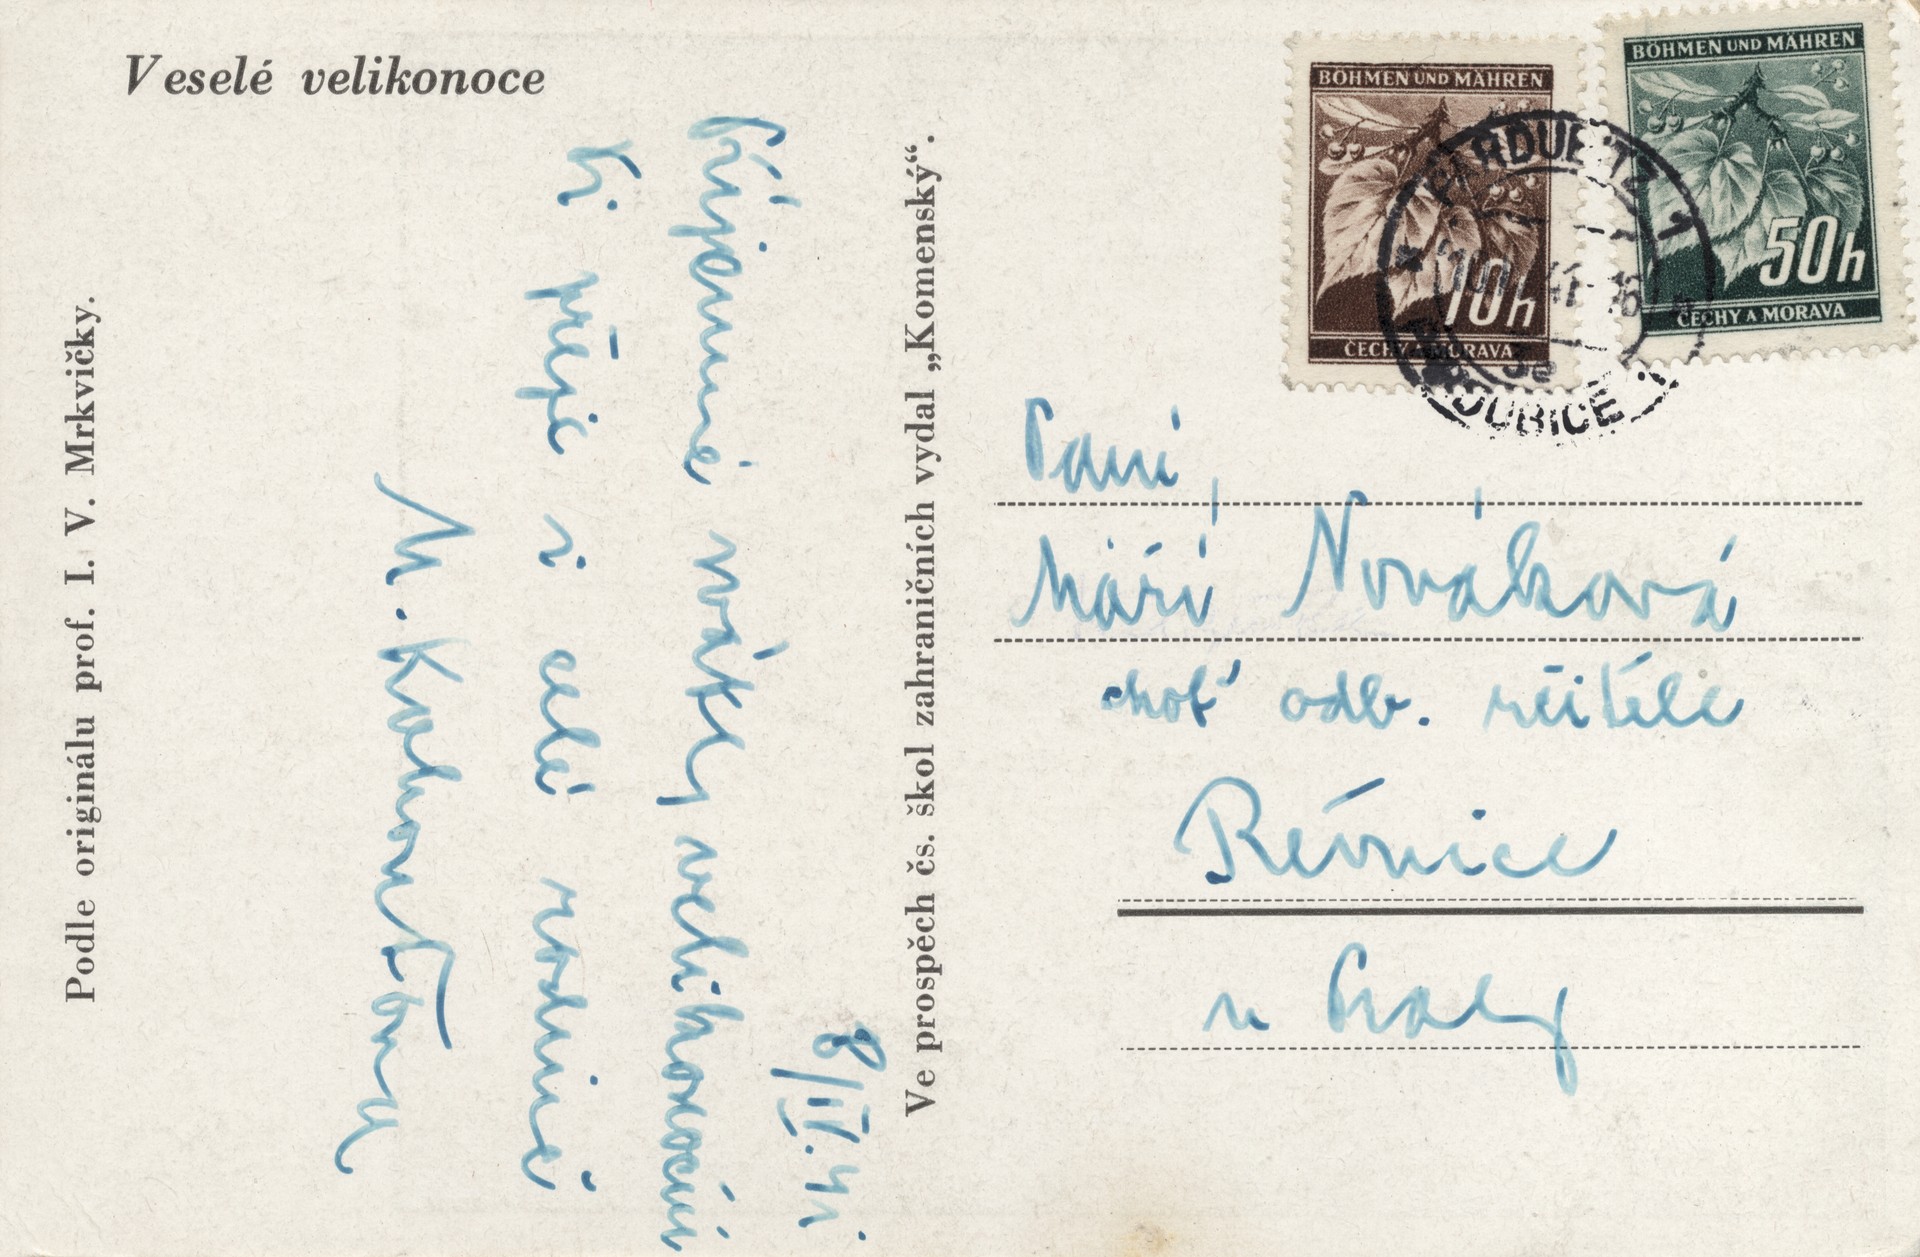 Veselé velikonoce
Podle originálu prof. I. V. Mrkvičky.
8/IV. 41.
Příjemné svátky velikonoční
Ti přeje i celé rodině
M. Kohoutova
Ve prospěch čs. škol zahraničních vydal „Komenský“.
BÖHMEN UND MÄHREN
10h
ČECHY A MORAVA
BÖHMEN UND MÄHREN
50h
ČECHY A MORAVA
PARDUBITZ 1
41
PARDUBICE
Paní
Máři Nováková
choť odb. učitele
Řevnice
u Prahy